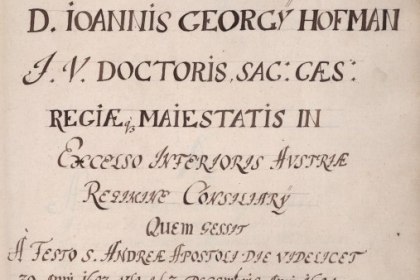 D. IOANNIS GEORGÿ HOFMAN
J. V. DOCTORIS, SAC: CÆS:
REGIÆ q3 MAIESTATIS IN
EXCELSO INTERIORIS AVSTRIÆ
REGIMINE CONSILIARÿ
QUEM GESSIT
À FESTO S. ANDREÆ APOSTOLI DIE VIDELICET